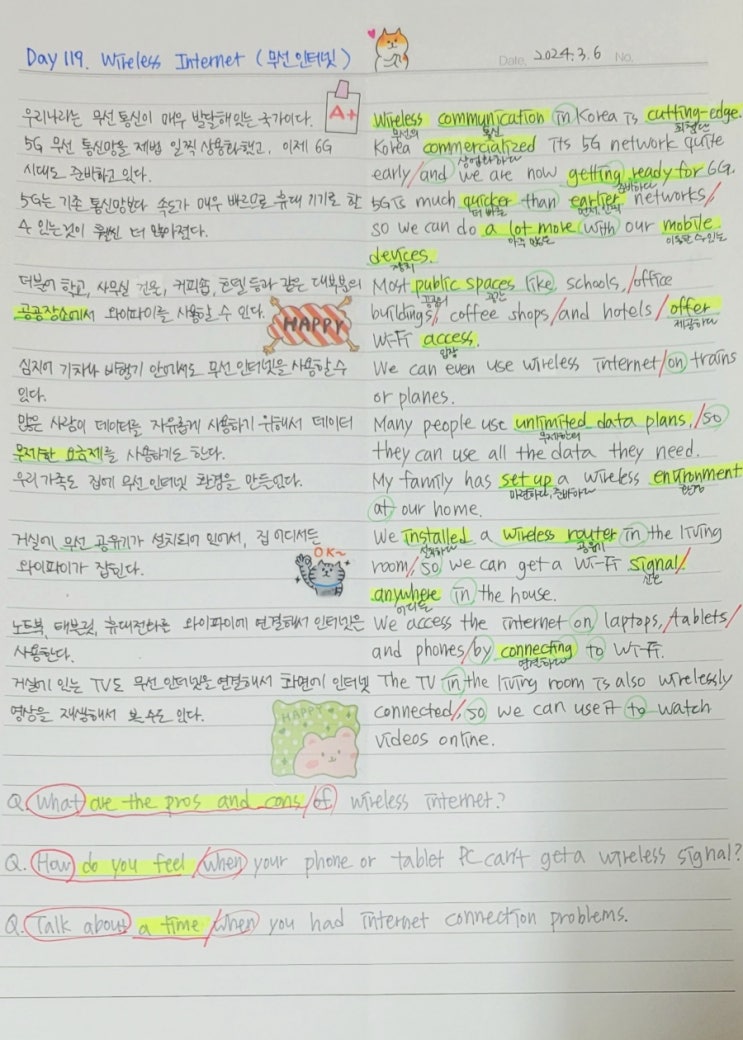 Day 119. Wireless Internet (무선 인터넷)
Date. 2024.3.6 No.
A+
우리나라는 무선 통신이 매우 발달해있는 국가이다.
5G 무선 통신망을 제법 일찍 상용화했고, 이제 6G
시대도 준비하고 있다.
5G는 기존 통신망보다 속도가 매우 빠르므로 휴대 기기로 할
수 있는것이 훨씬 더 많아졌다.
더불어 학교, 사무실 건물, 커피숍, 호텔 등과 같은 대부분의
공공장소에서 와이파이를 사용할 수 있다.
HAPPY
심지어 기차나 비행기 안에서도 무선 인터넷을 사용할 수
있다.
많은 사람이 데이터를 자유롭게 사용하기 위해서 데이터
무제한 요금제를 사용하기도 한다.
우리 가족도 집에 무선 인터넷 환경을 만들었다.
거실에 무선 공유기가 설치되어 있어서, 집 어디서든
와이파이가 잡힌다.
OK~
노트북, 태블릿, 휴대전화를 와이파이에 연결해서 인터넷을
사용한다.
거실에 있는 TV도 무선 인터넷을 연결해서 화면에 인터넷
영상을 재생해서 볼 수도 있다.
HAPPY
Wireless communication in Korea is cutting-edge.
무선의 통신 최첨단
Korea commercialized its 5G network quite
상업화하다
early/and we are now getting ready for 6G.
준비하다
5G is much quicker than earlier networks/
더 빠른
so we can do a lot more with our mobile
아주 많은 이동할 수 있는
devices.
장치
Most public spaces like schools,/office
공공의 공간
buildings,/coffee shops/and hotels/offer
제공하다
Wi-Fi access.
입장
We can even use wireless internet/on trains
or planes.
Many people use unlimited data plans,/so
무제한의
they can use all the data they need.
My family has set up a wireless environment
마련하다, 준비하다 환경
at our home.
We installed a wireless router in the living
설치하다 공유기
room/so we can get a Wi-Fi signal/
신호
anywhere in the house.
어디든
We access the internet on laptops,/tablets/
and phones/by connecting to Wi-Fi.
연결하다
The TV in the living room is also wirelessly
connected/, so we can use it to watch
videos online.
Q. What are the pros and cons/of wireless internet?
Q. How do you feel/when your phone or tablet PC can't get a wireless signal?
Q. Talk about a time/when you had internet connection problems.